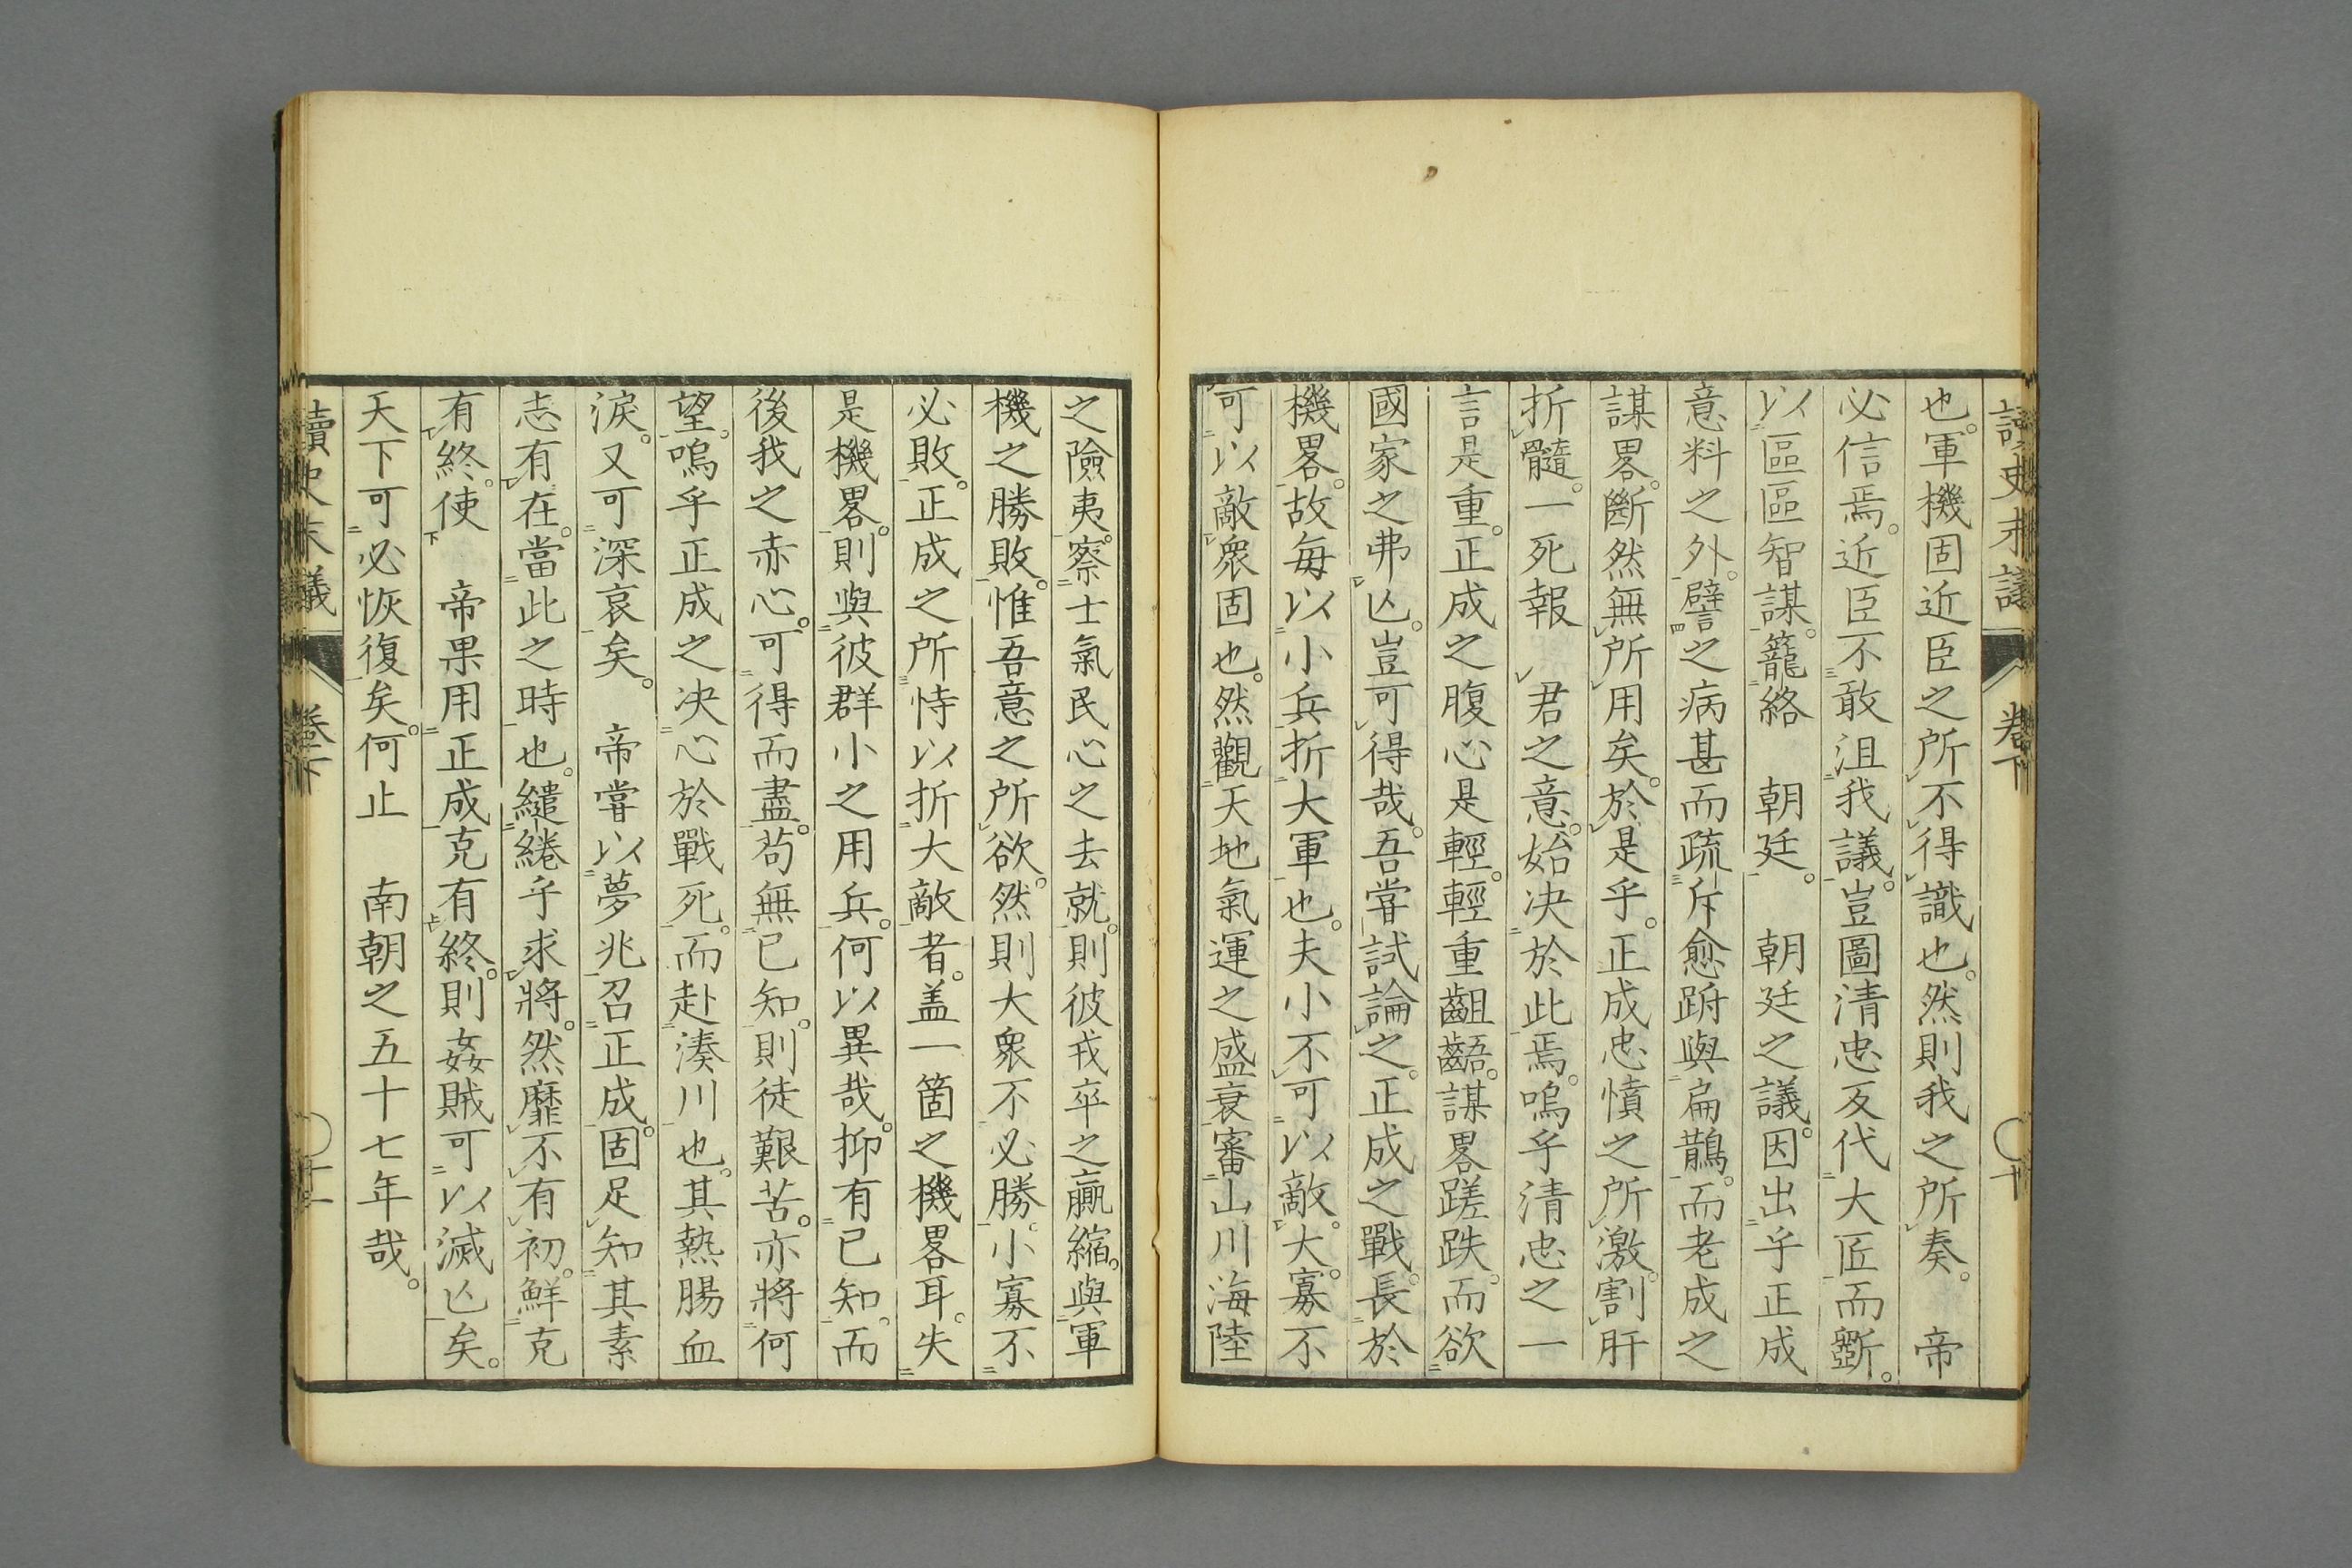 讀史末議 卷下 〇十
也。軍機固近臣之所不得識也。然則我之所奏。 帝
必信焉。近臣不敢沮我議。豈圖清忠反代大匠而斵。
以區區智謀。籠絡 朝廷。 朝廷之議。因出乎正成
意料之外。譬之病甚而疏斥愈跗與扁鵲。而老成之
謀畧。斷然無所用矣。於是乎。正成忠憤之所激。割肝
折髓。一死報 君之意。始决於此焉。嗚乎清忠之一
言是重。正成之腹心是輕。輕重齟齬。謀畧蹉跌。而欲
國家之弗亾。豈可得哉。吾甞試論之。正成之戰。長於
機畧。故每以小兵折大軍也。夫小不可以敵大。寡不
可以敵衆固也。然觀天地氣運之盛衰。審山川海陸
之險夷。察士氣民心之去就。則彼戎卒之贏縮。與軍
機之勝敗。惟吾意之所欲。然則大衆不必勝。小寡不
必敗。正成之所恃以折大敵者。盖一箇之機畧耳。失
是機畧。則與彼群小之用兵。何以異哉。抑有已知。而
後我之赤心。可得而盡。苟無已知。則徒艱苦。亦將何
望。嗚乎正成之决心於戰死。而赴湊川也。其熱腸血
淚。又可深哀矣。 帝甞以夢兆召正成。固足知其素
志有在。當此之時也。繾綣乎求將。然靡不有初。鮮克
有終。使 帝果用正成克有終。則姦賊可以滅亾矣。
天下可必恢復矣。何止 南朝之五十七年哉。
讀史末議 卷下 〇十一